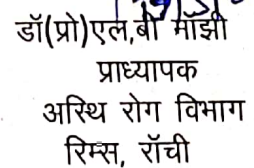 डॉ(प्रो)एल,बी माँझी
प्राध्यापक
अस्थि रोग विभाग
रिम्स, राँची